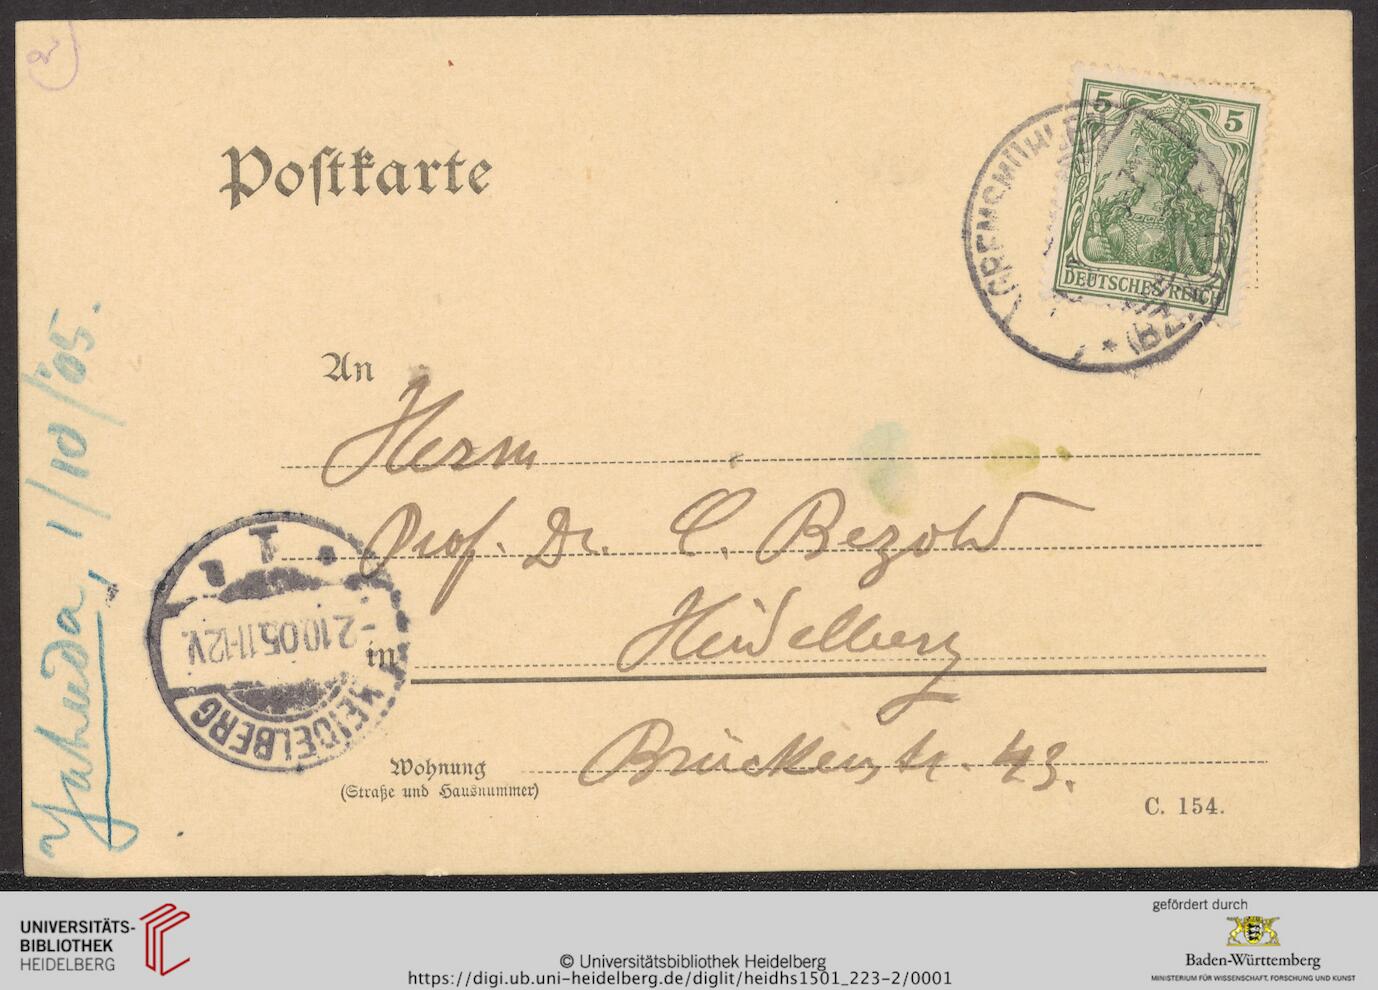 2
Postkarte
5 5
DEUTSCHES REICH
GREMSMÜHLEN
(BZ.
An
Herrn
Prof. Dr. C. Bezold
in Heidelberg
Wohnung Brückenstr. 43.
(Straße und Hausnummer)
C. 154.
Yahuda, 1/10/'05.
HEIDELBERG
-2.10.05.11-12V.
1
UNIVERSITÄTS-
BIBLIOTHEK
HEIDELBERG
© Universitätsbibliothek Heidelberg
https://digi.ub.uni-heidelberg.de/diglit/heidhs1501_223-2/0001
gefördert durch
Baden-Württemberg
MINISTERIUM FÜR WISSENSCHAFT, FORSCHUNG UND KUNST